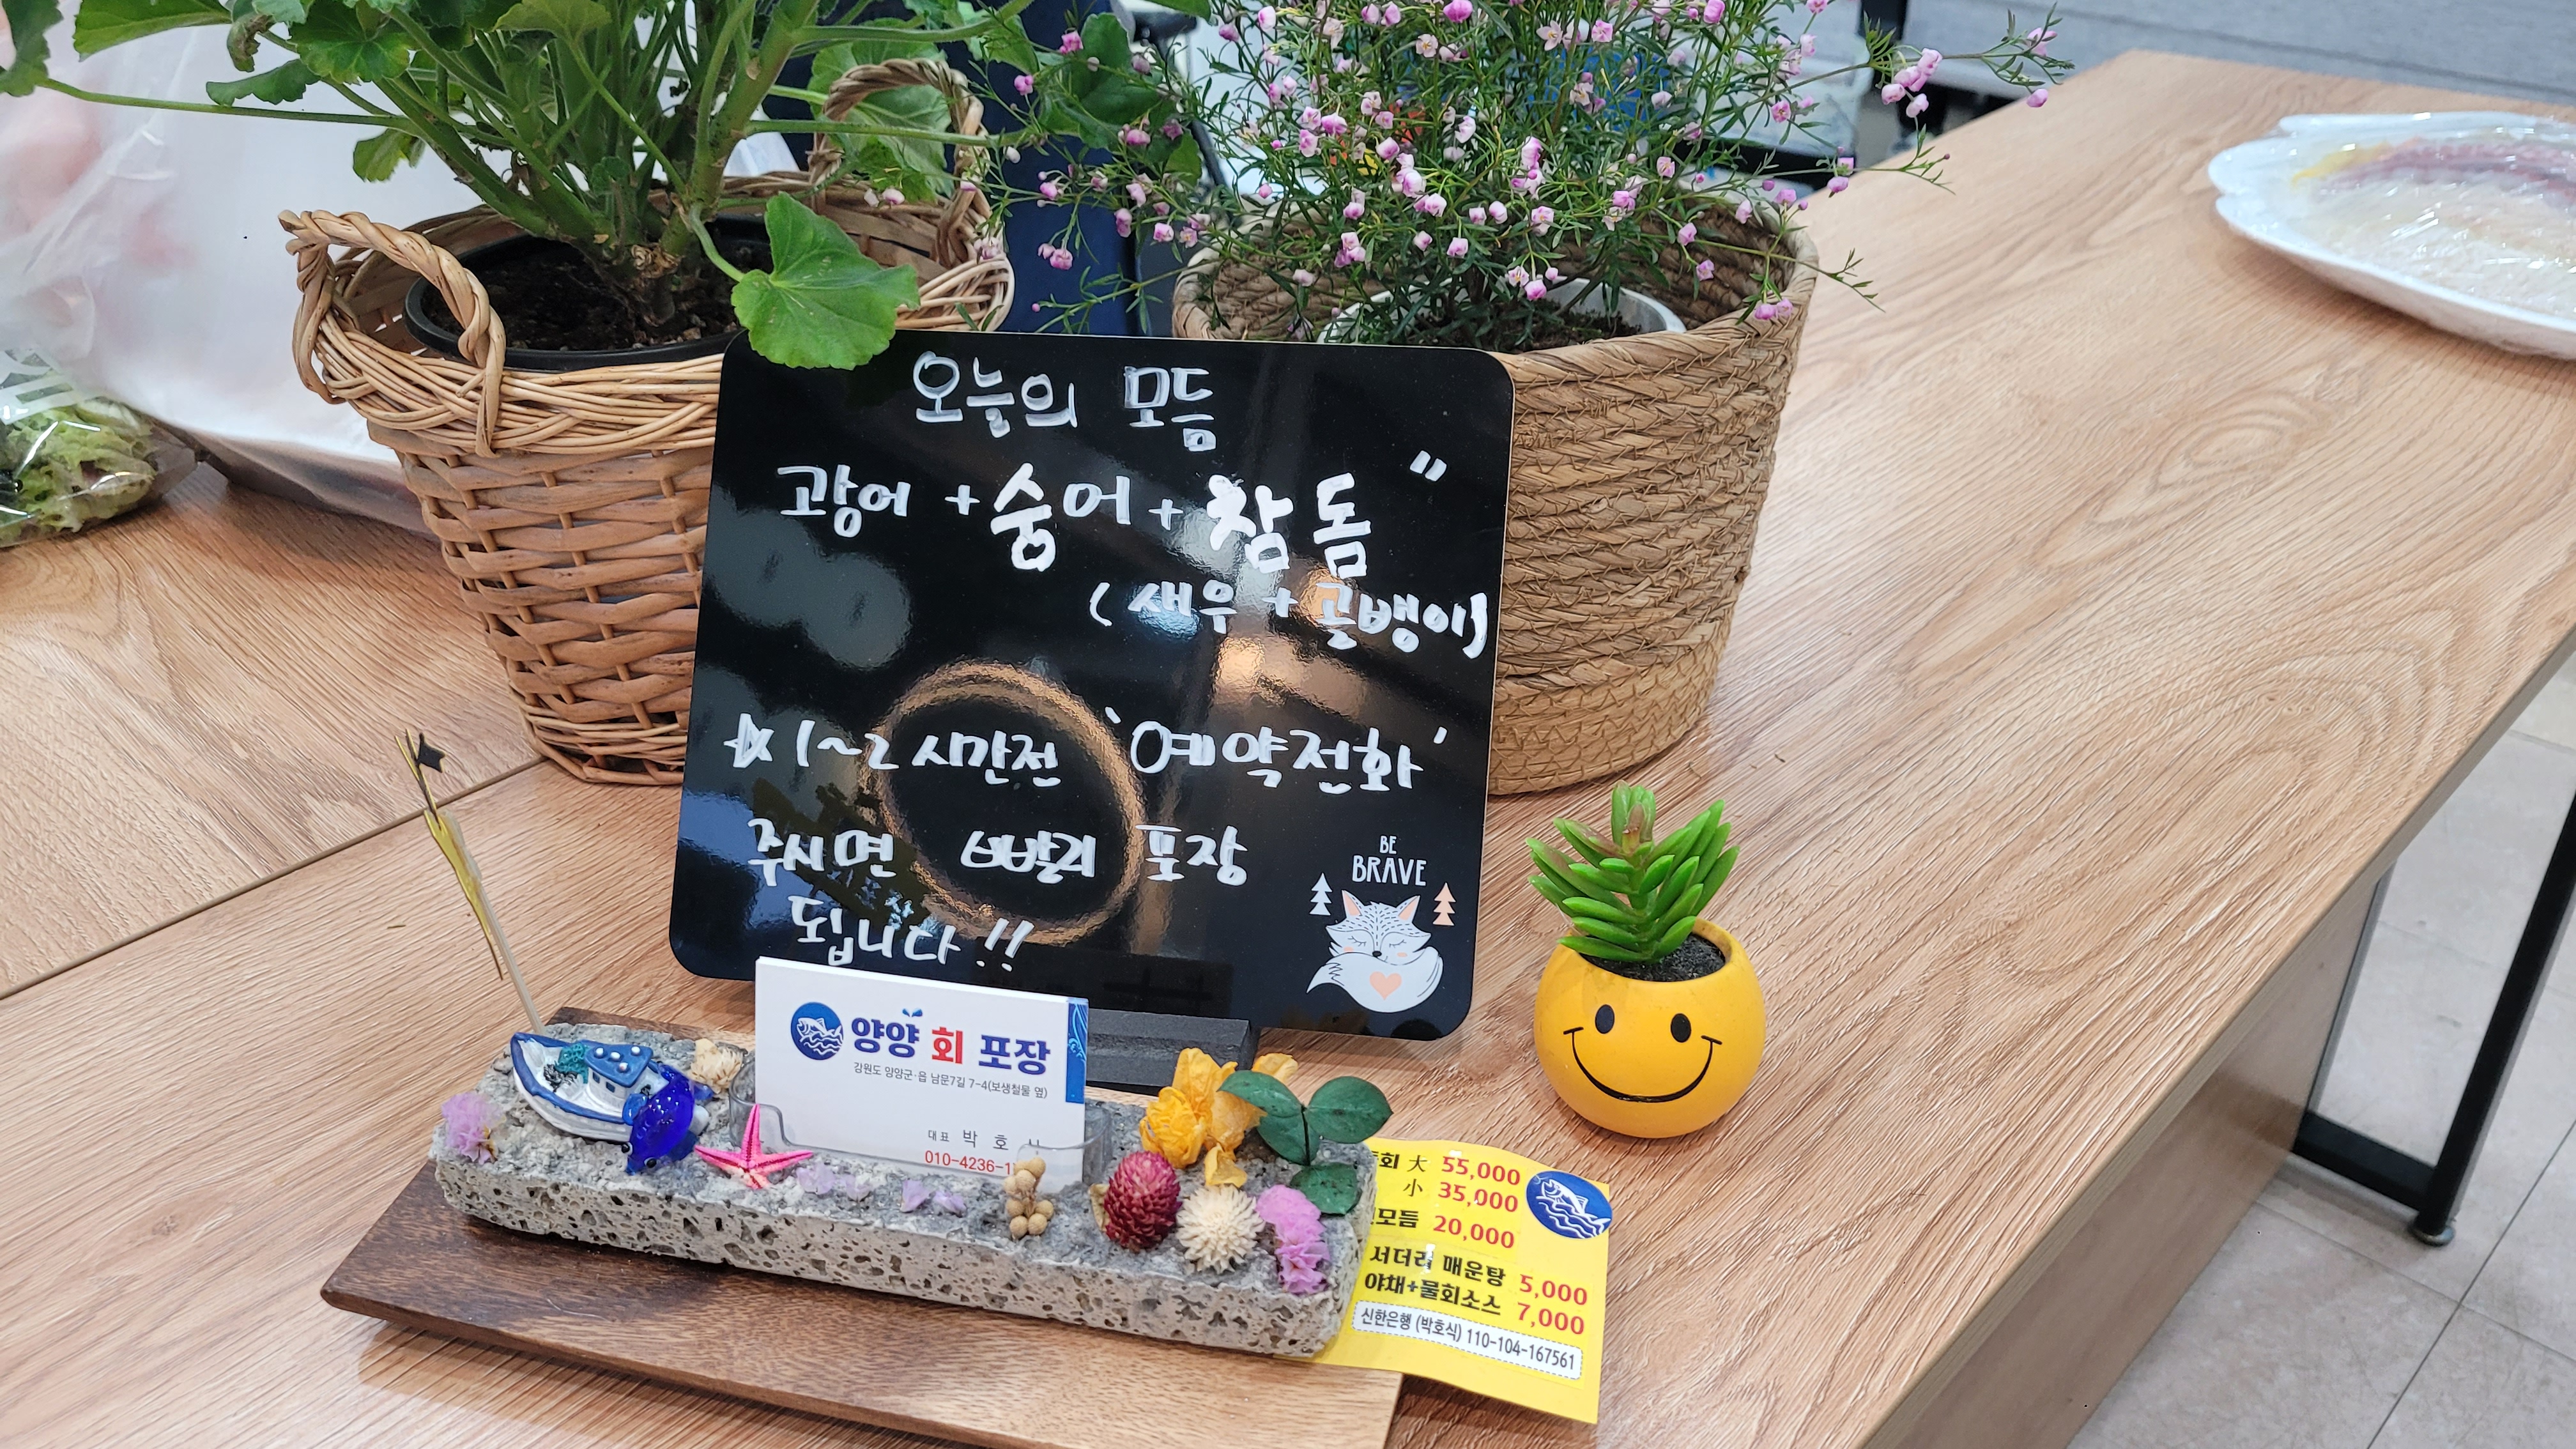 오늘의 모듬
광어 + 숭어 + 참돔 "
(새우 + 골뱅이)
☆ 1~2 시간전 '예약전화'
주시면 빠빨리 포장
됩니다!!
BE
BRAVE
양양 회 포장
강원도 양양군·읍 남문7길 7-4(보생철물 옆)
대표 박 호
010-4236-1
회 大 55,000
小 35,000
모듬 20,000
서더리 매운탕 5,000
야채+물회소스 7,000
신한은행 (박호식) 110-104-167561